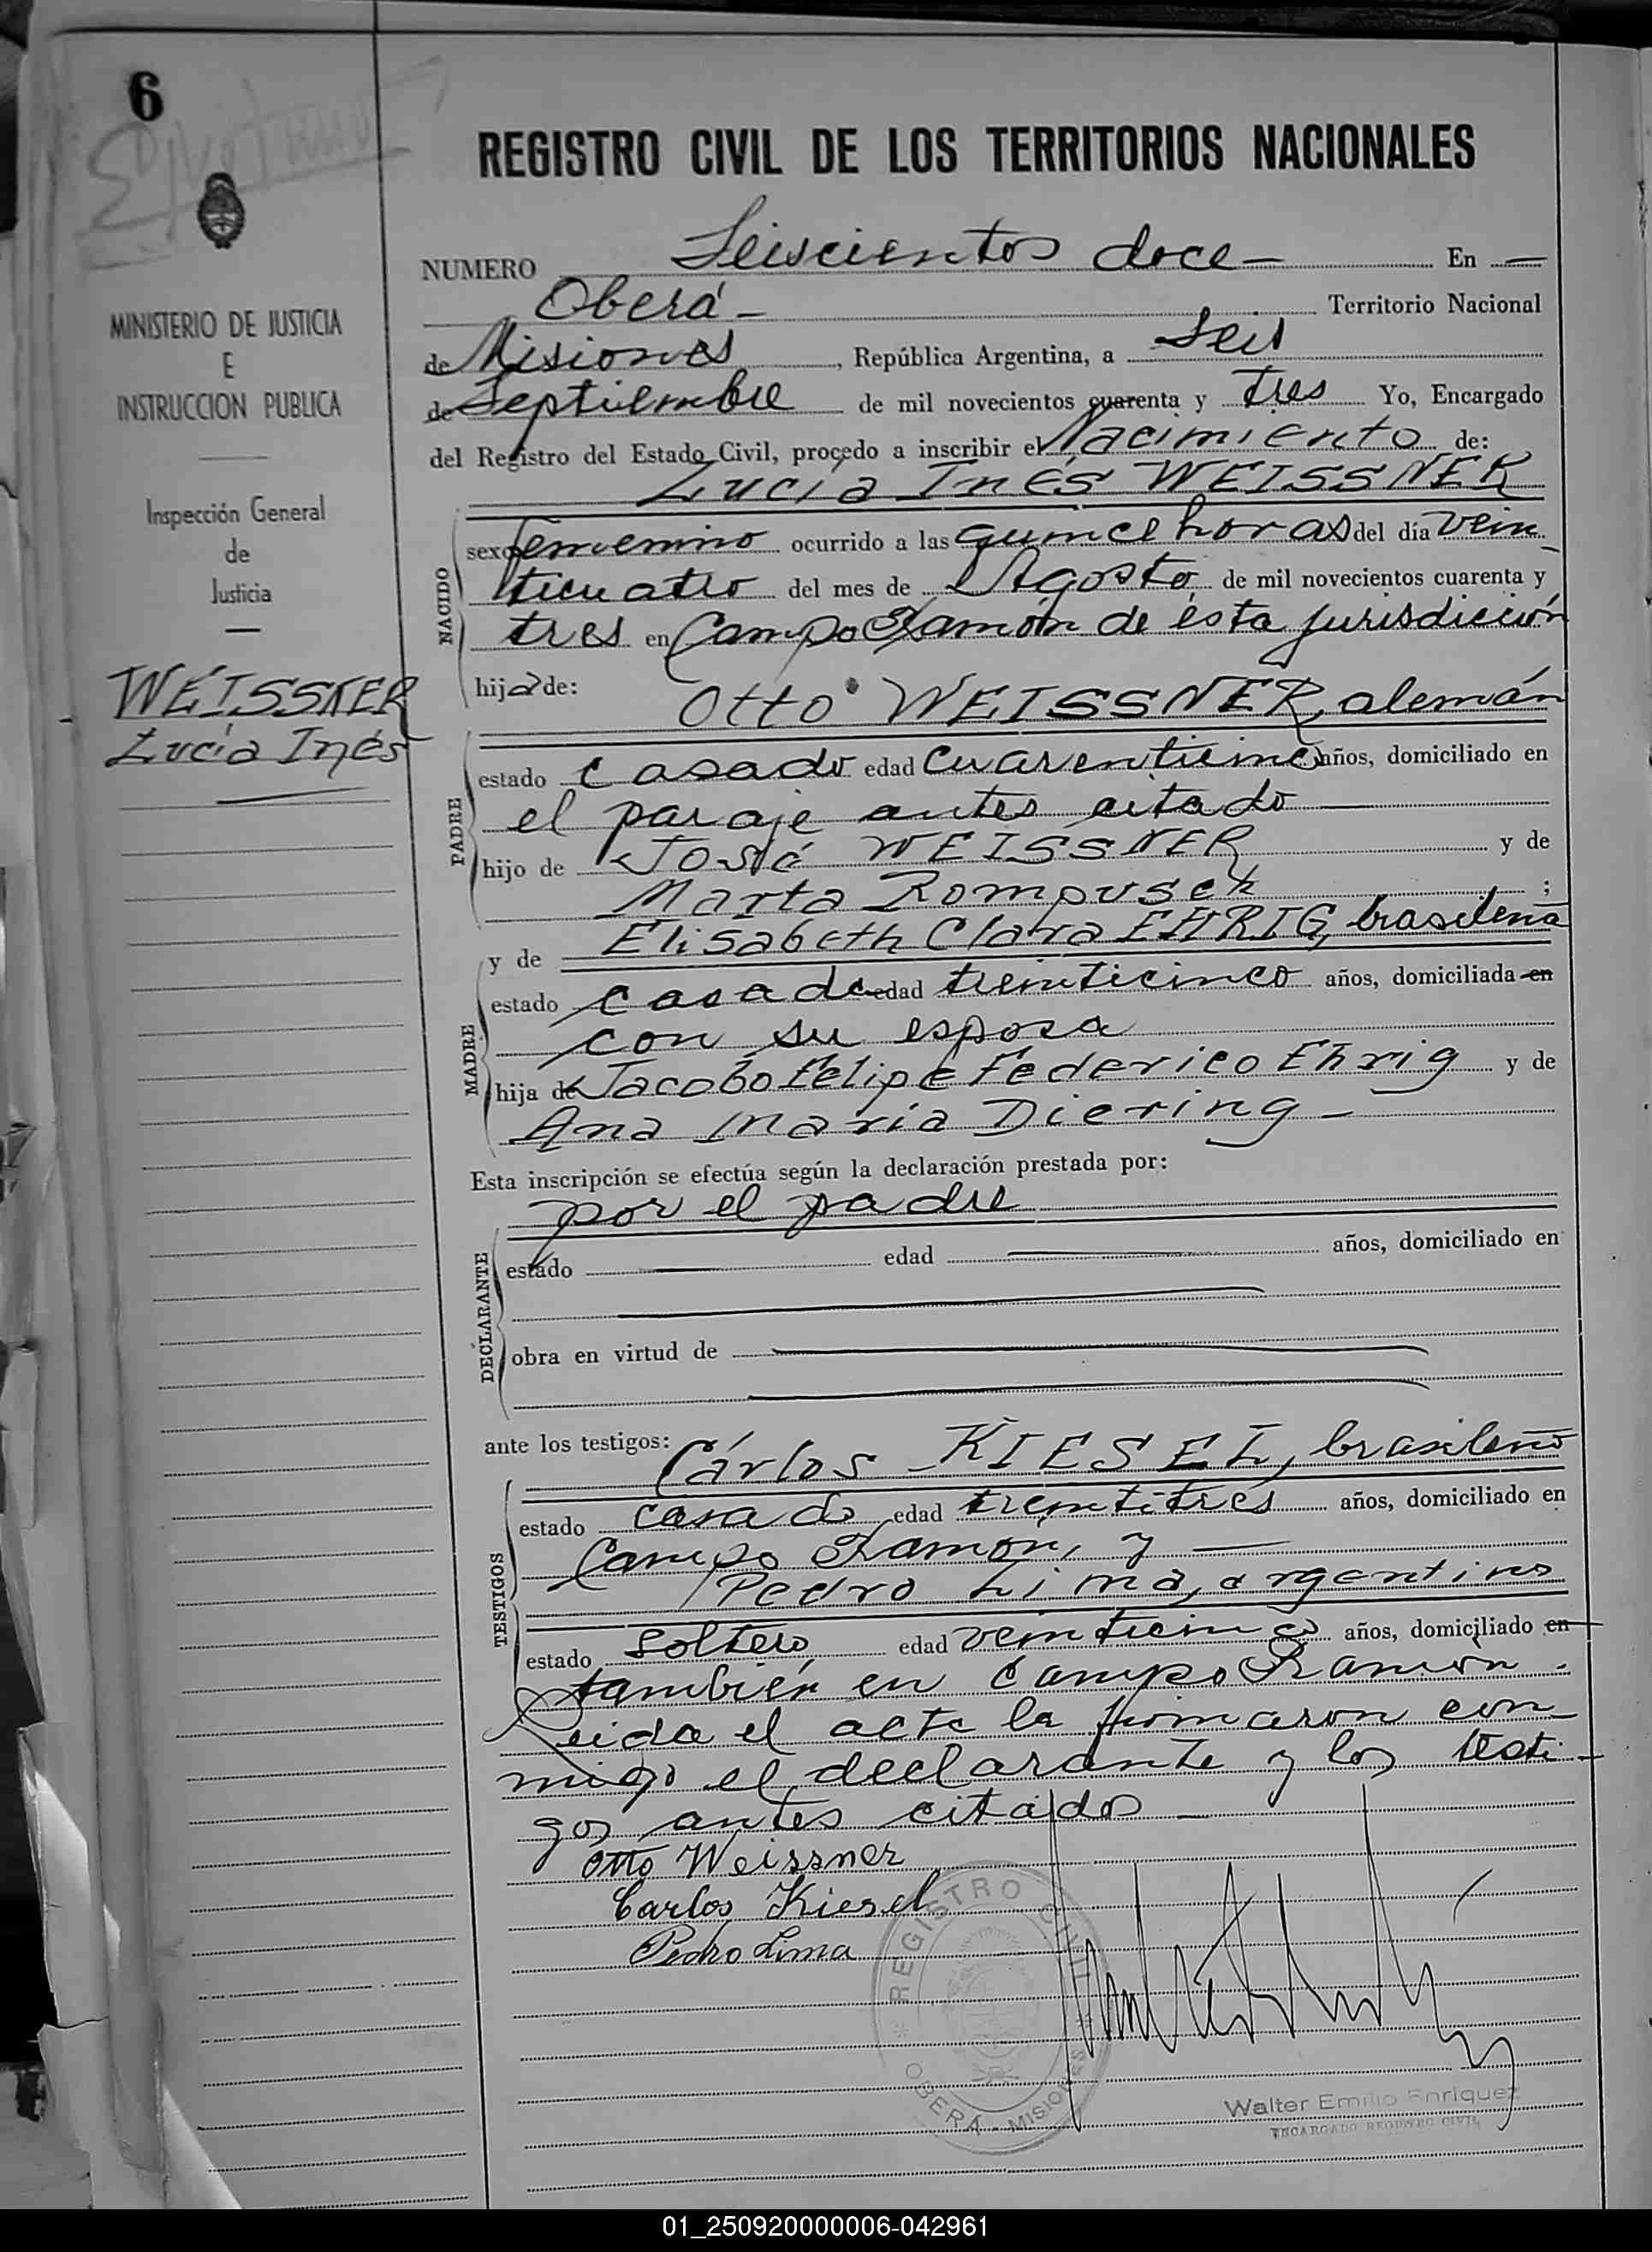 6
REGISTRO CIVIL DE LOS TERRITORIOS NACIONALES
NUMERO Seiscientos doce — En —
Oberá — Territorio Nacional
de Misiones, República Argentina, a Seis
de Septiembre de mil novecientos cuarenta y tres Yo, Encargado
del Registro del Estado Civil, procedo a inscribir el Nacimiento de:
Lucía Inés WEISSNER
sexo femenino ocurrido a las quince horas del día vein
ticuatro del mes de Agosto de mil novecientos cuarenta y
tres en Campo Ramón de ésta jurisdicción
hija de: Otto WEISSNER, alemán
estado casado edad años, domiciliado en
el paraje antes citado
hijo de José WEISSNER y de
Marta Rompusch ;
y de Elisabeth Clara EHRIG, brasileña
estado casada edad treinticinco años, domiciliada en
con su esposa
hija de Jacobo Felipe Federico Ehrig y de
Ana Maria Diering —
Esta inscripción se efectúa según la declaración prestada por:
por el padre
estado — edad — años, domiciliado en
obra en virtud de
ante los testigos: Cárlos KIESEL, brasileño
estado casado edad treintitrés años, domiciliado en
Campo Ramón, y —
Pedro Lima, argentino
estado soltero edad veinticinco años, domiciliado en
también en Campo Ramón.
Leida el acta la firmaron con
migo el declarante y los testi-
gos antes citados —
Otto Weissner
Carlos Kiesel
Pedro Lima
NACIDO
PADRE
MADRE
DECLARANTE
TESTIGOS
MINISTERIO DE JUSTICIA
E
INSTRUCCION PUBLICA
Inspección General
de
Justicia
WEISSNER
Lucía Inés
REGISTRO CIVIL
OBERÁ - MISIONES
Walter Emilio Enriquez
ENCARGADO REGISTRO CIVIL
01_250920000006-042961